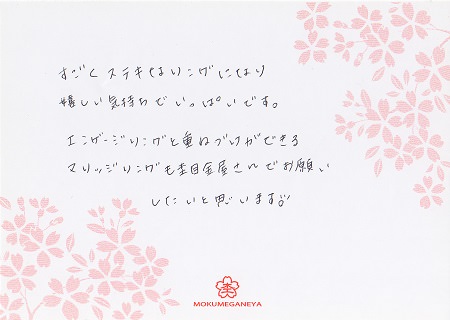 すごくステキなリングになり
嬉しい気持ちでいっぱいです。
エンゲージリングと重ねづけができる
マリッジリングも杢目金屋さんでお願い
したいと思います!!
MOKUMEGANEYA